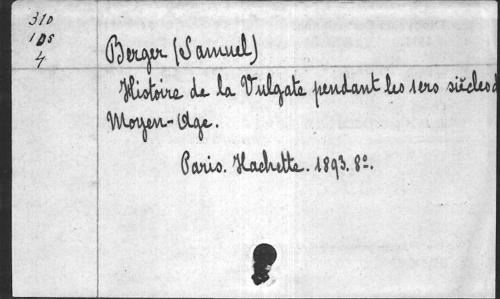 310
105
4
Berger (Samuel)
Histoire de la Vulgate pendant les 1ers siècles d
Moyen-Age.
Paris. Hachette. 1893. 8º.